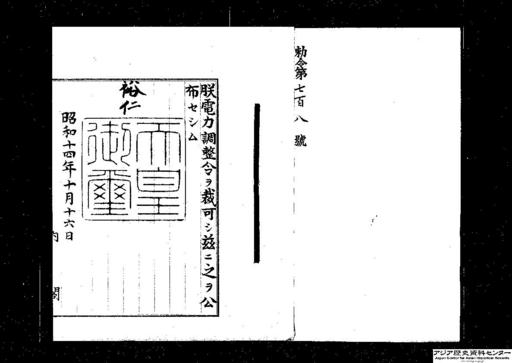 勅令第七百八號
朕電力調整令ヲ裁可シ茲ニ之ヲ公
布セシム
裕仁
天皇
御璽
昭和十四年十月十六日
内閣
アジア歴史資料センター
Japan Center for Asian Historical Records